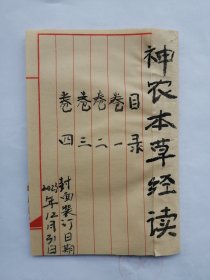 神农本草经读
目录
卷一
卷二
卷三
卷四
封面装订日期
2023年12月31日